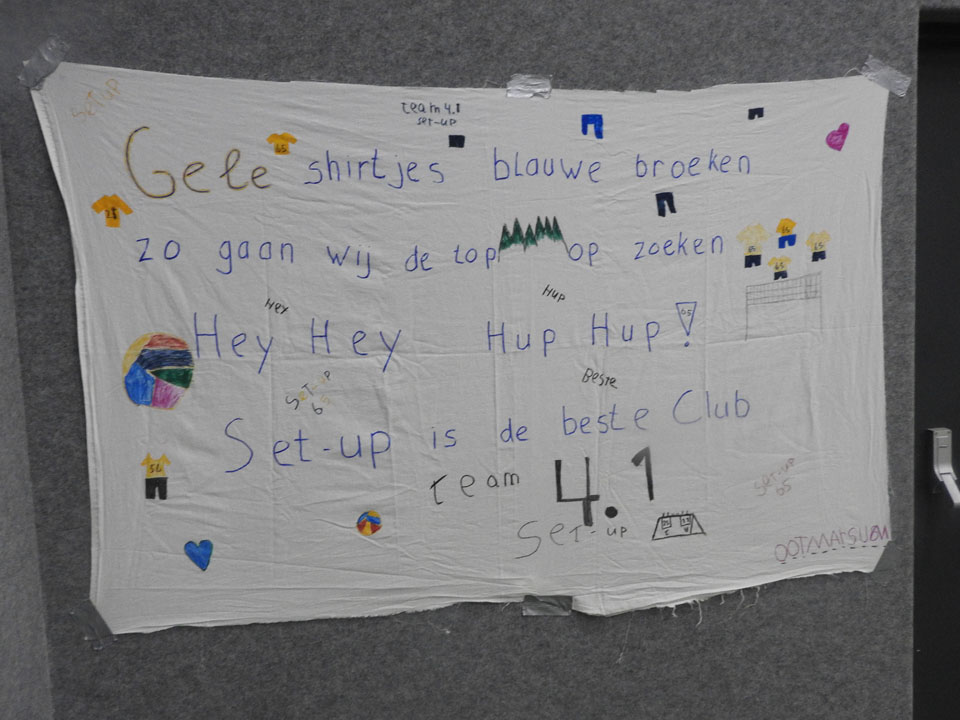 SET UP
team 4.1
set-up
Gele shirtjes blauwe broeken
zo gaan wij de top op zoeken
Hey Hup
Hey Hey Hup Hup!
Set-up
65
Beste
Set-up is de beste Club
team 4.1
Set-up
Set-up
65
OOTMARSUM